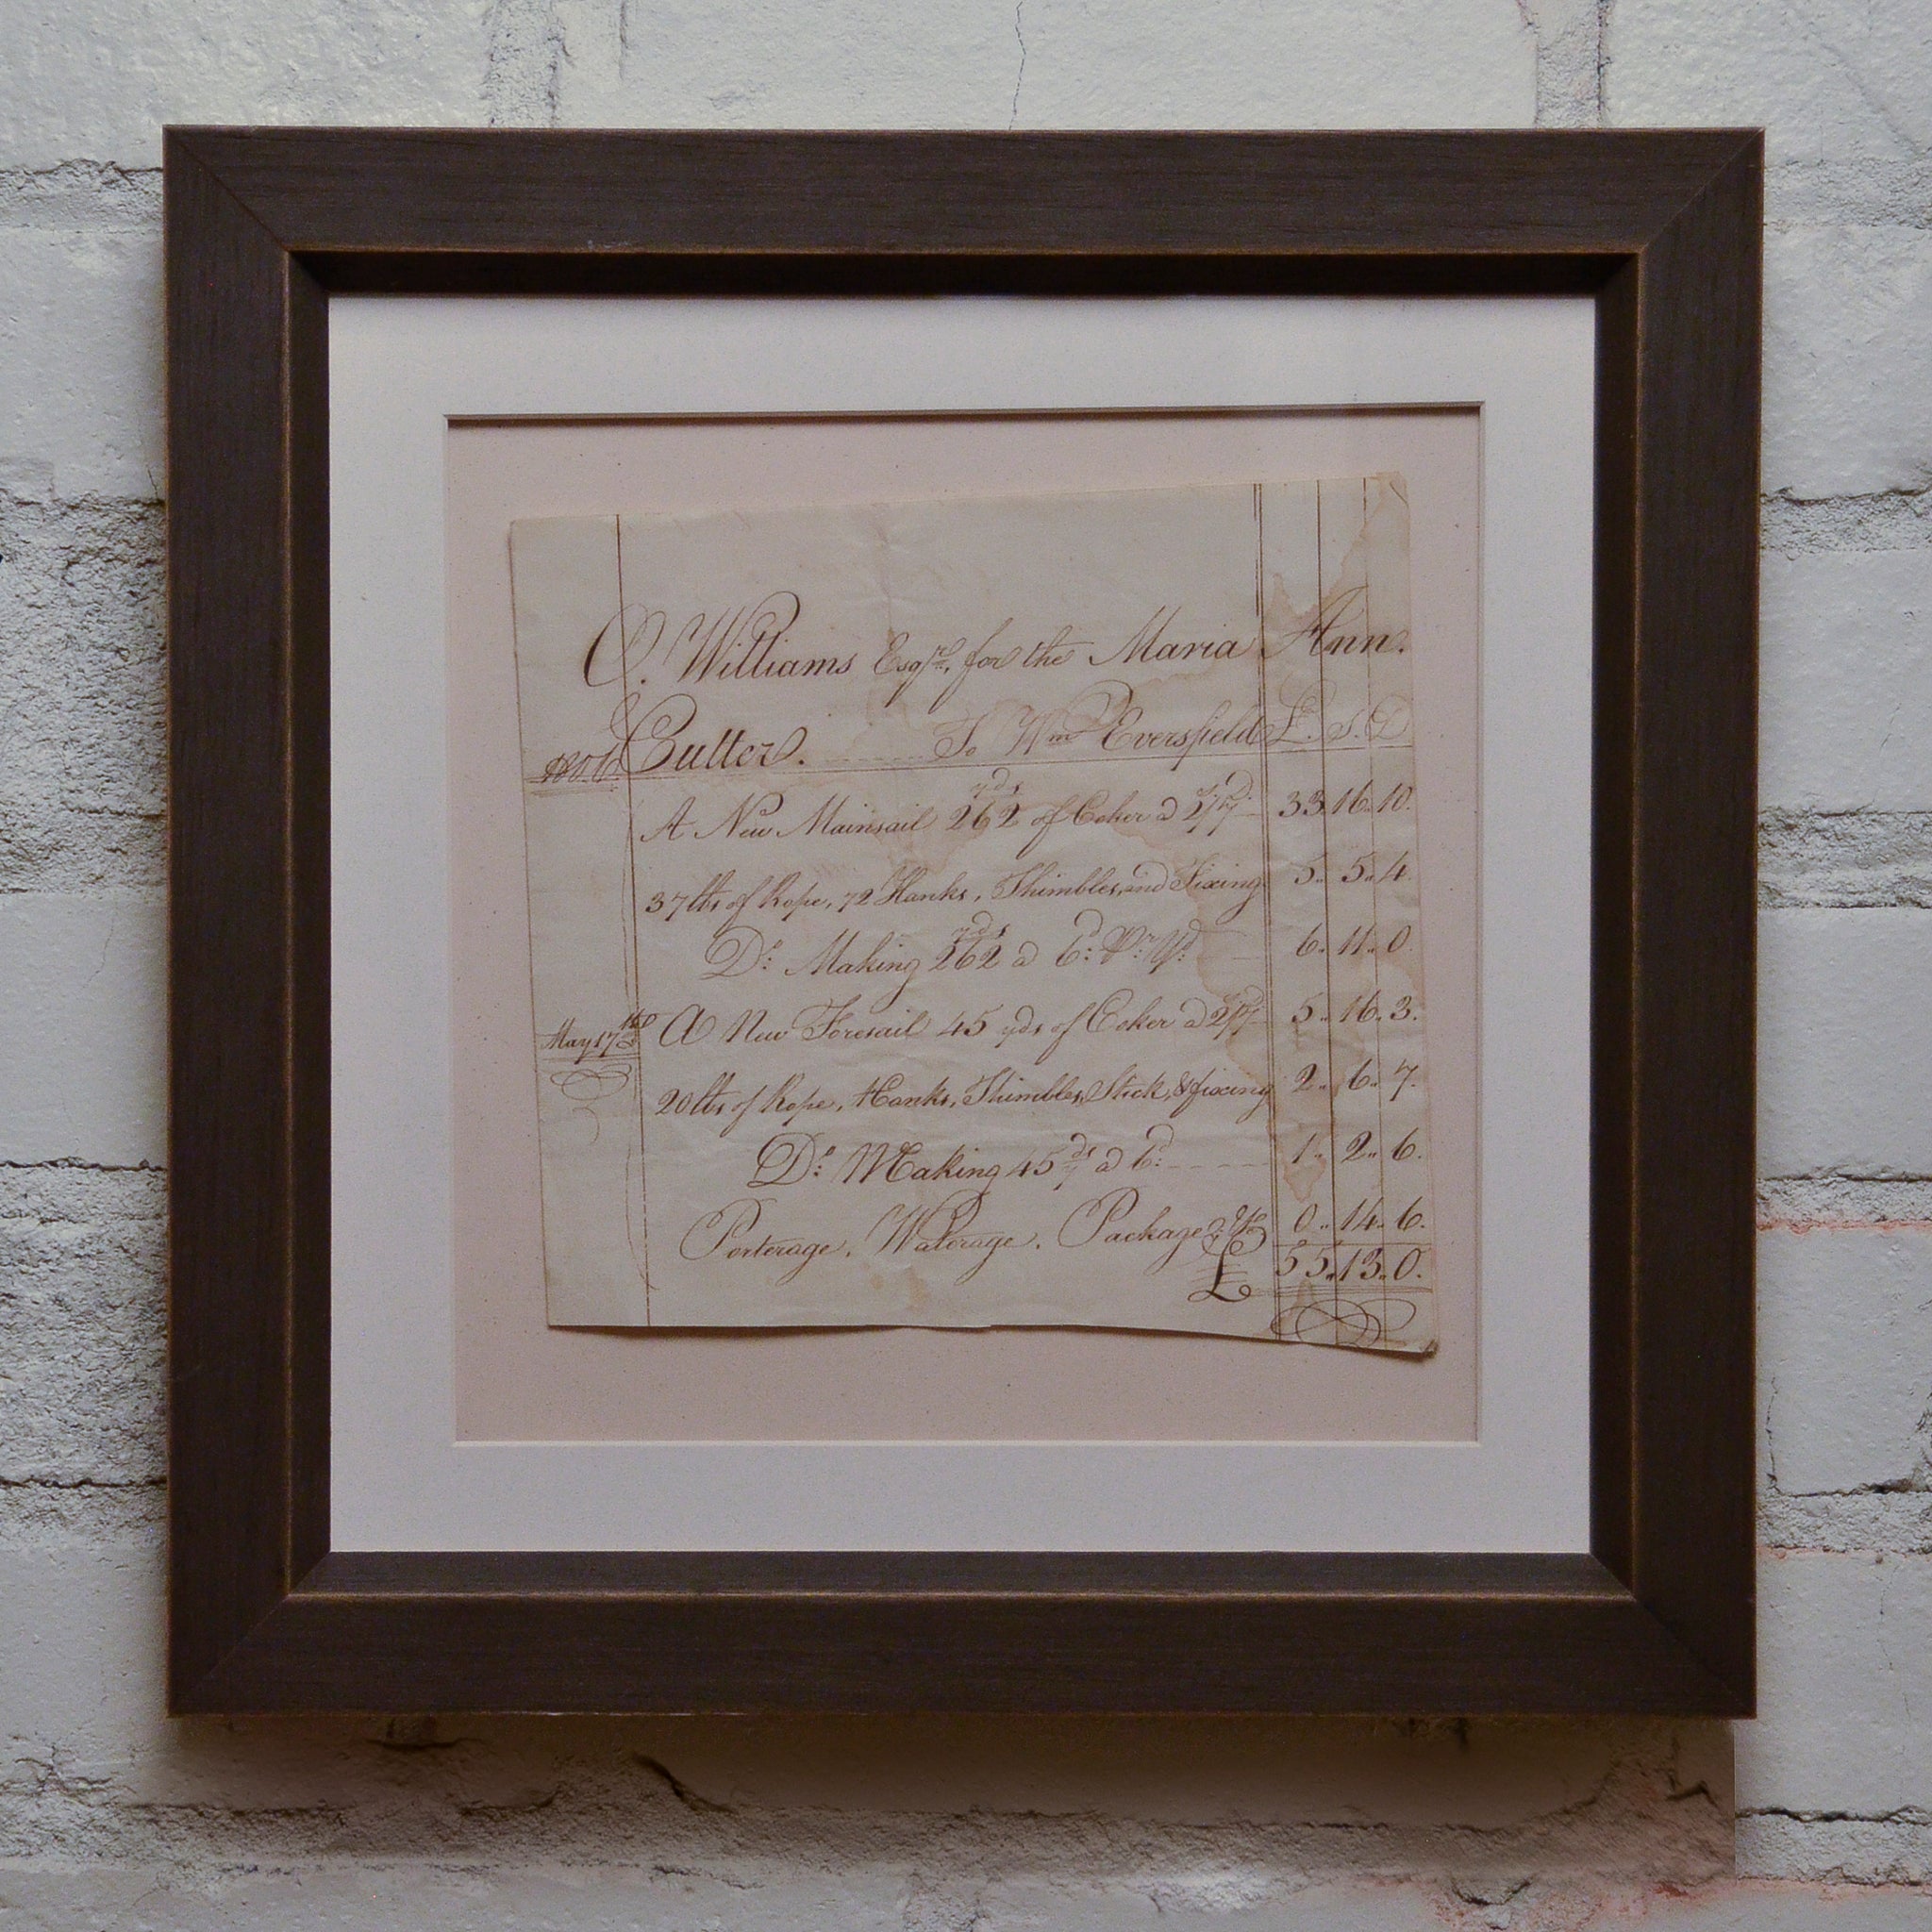 O. Williams Esqre. for the Maria Ann.
Cutter. To Wm Eversfield £. S. D
A New Mainsail 262 yds of Coker a 2/7d 33. 16. 10.
37 lbs of Rope, 72 Hanks, Thimbles, and Fixing. 5.. 5.. 4.
Do. Making 262 yds a 6d. Pr. Yd. 6.. 11.. 0.
May 17th A New Foresail 45 yds of Coker a 2/7d 5.. 16.. 3.
20 lbs of Rope, Hanks, Thimbles, Stick, & fixing 2.. 6.. 7.
Do. Making 45 yds a 6d. 1.. 2.. 6.
Porterage, Waterage, Package 0.. 14.. 6.
£ 55.. 13.. 0.